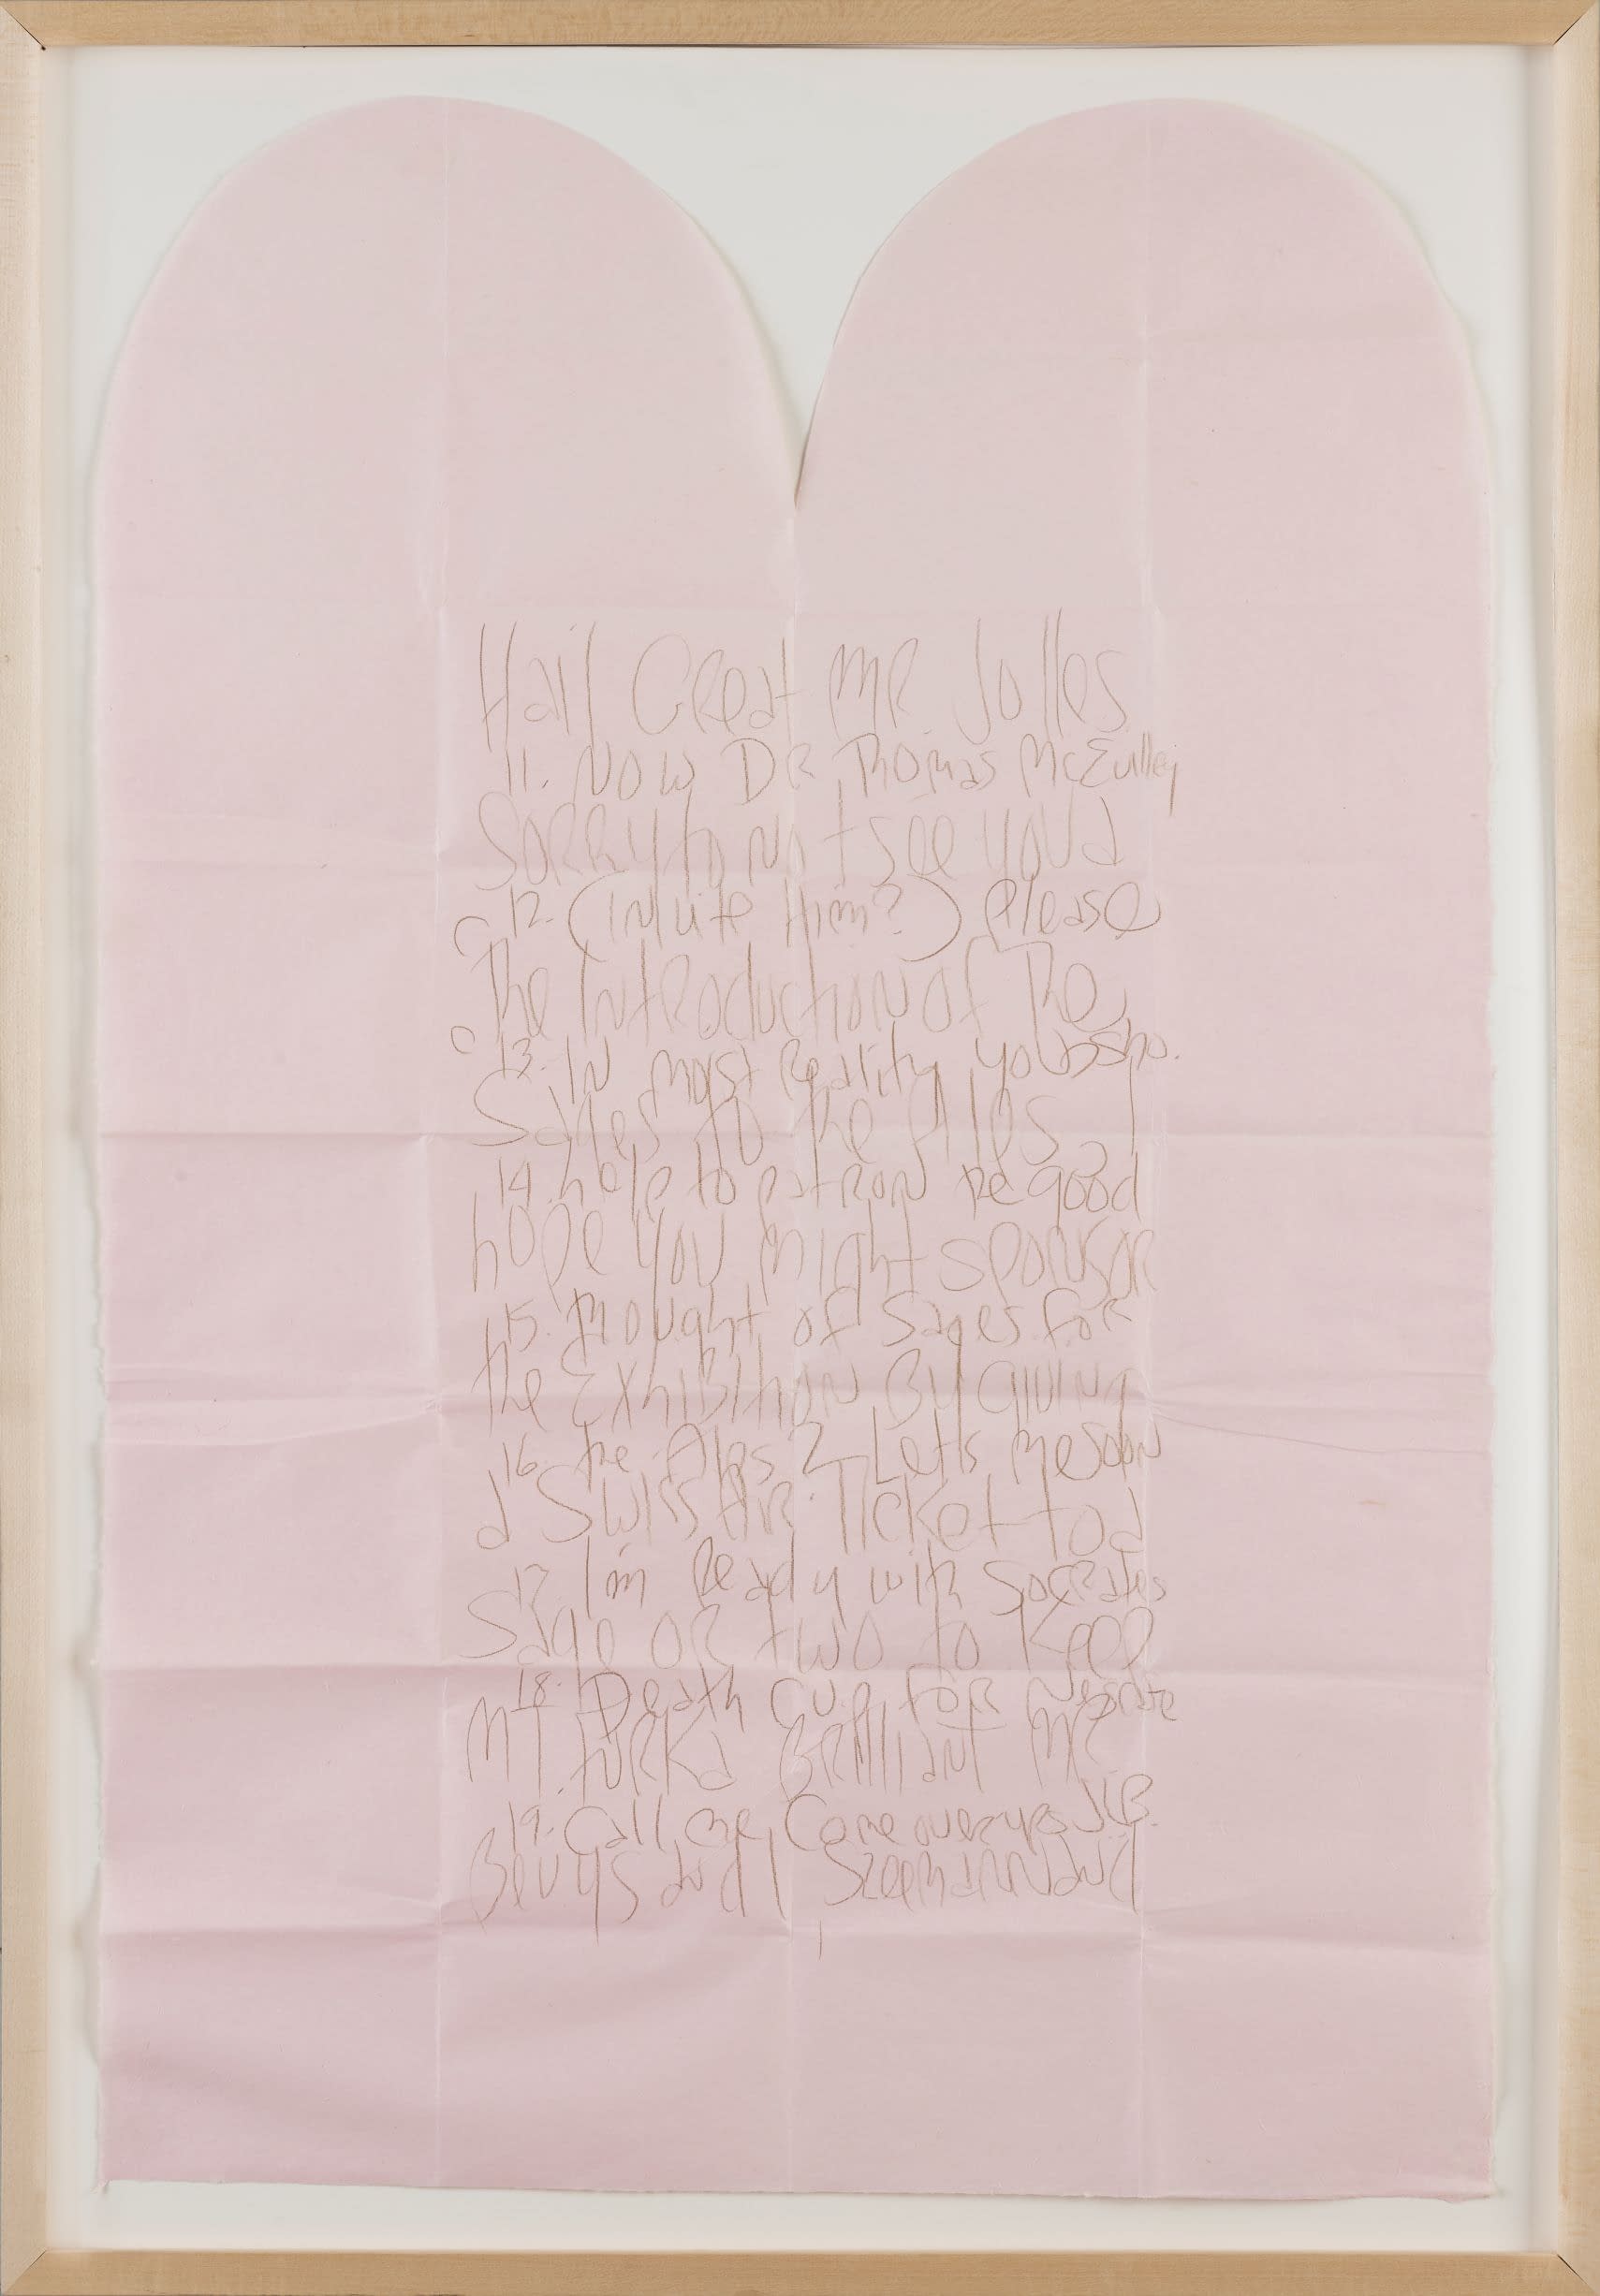 Hail GReat MR. Jolles
11. Now DR Thomas McEvilley
SoRRy to Not see you a
12. (INvite Him?) Please
The INtRoductioN of The
13. IN most Reality you
Sages to the Alps
14. help to patRoN the good
hope you might spoNsoR
15. Thought of Sages foR
the ExhiBitioN By giving
16. the Alps 2 Let's me sooN
a Swiss AiR. Ticket to a
17 I'm Ready with SocRates
Sage oR two to Keep
18. Death cup foR
MT. FuRka BRilliaNt MR
19. Call me, Come oveR yes JLB.
Beuys aNd